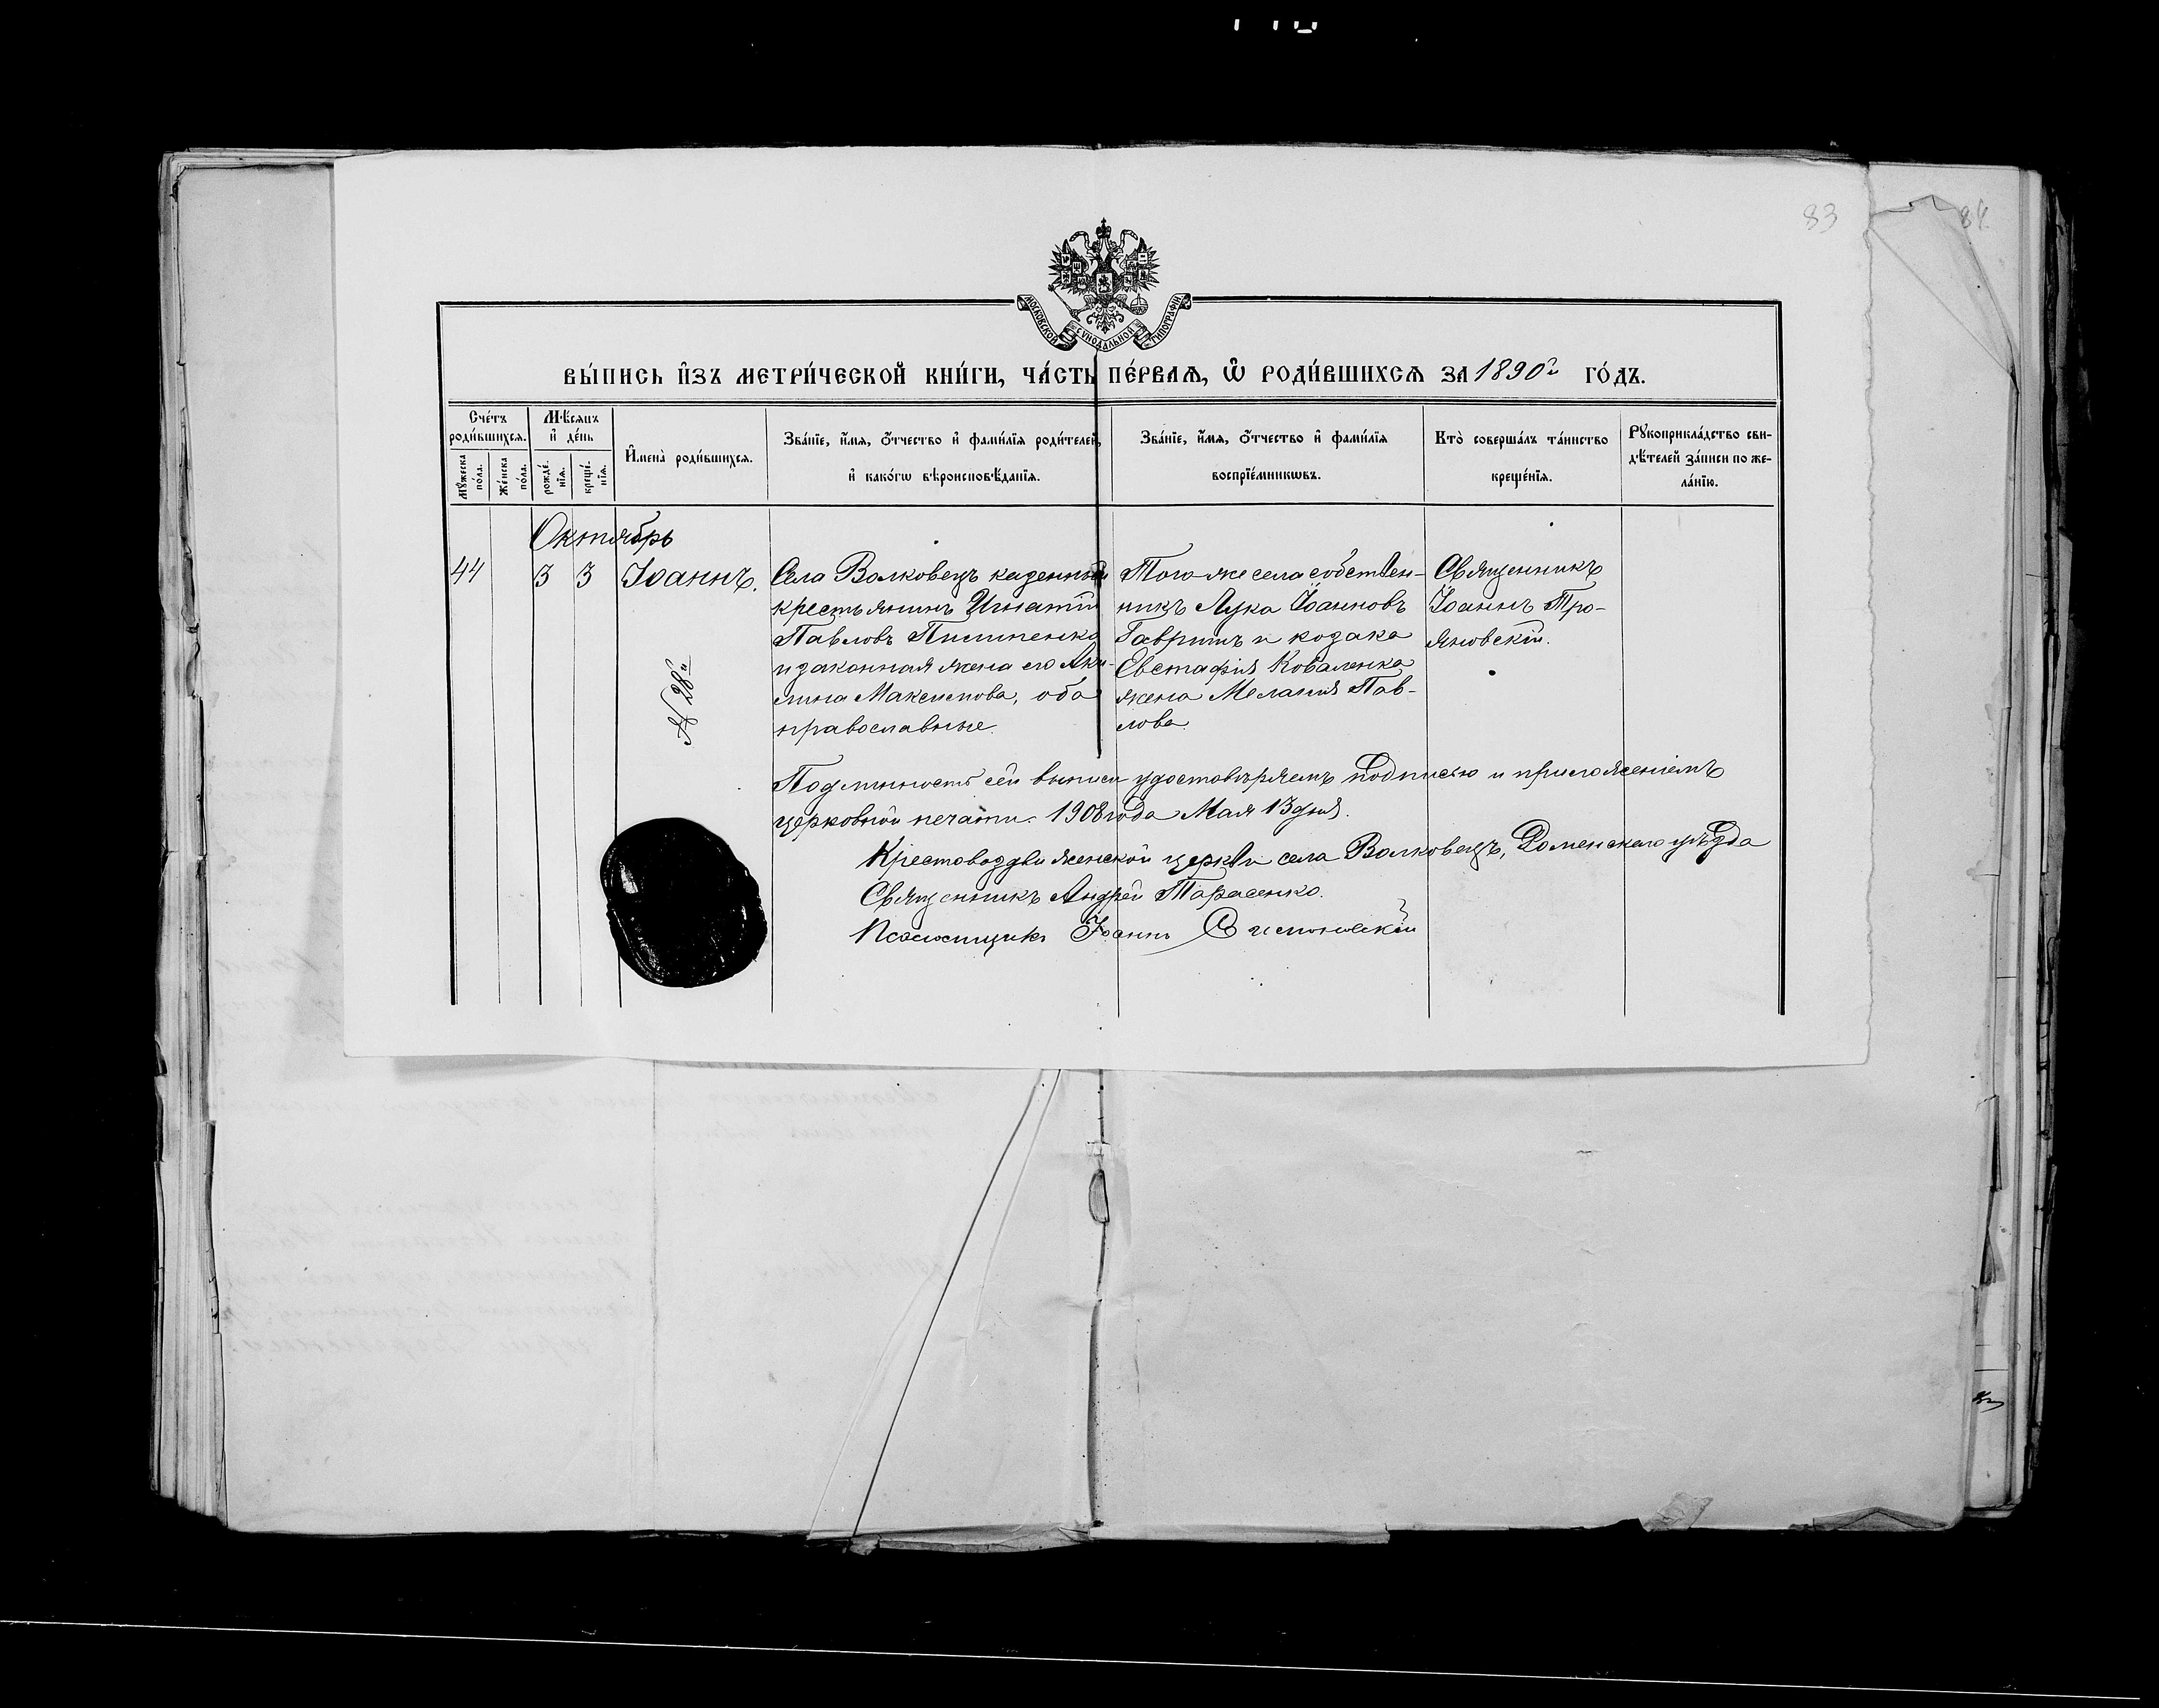 83
84
МОСКОВСКОЙ СѴНОДАЛЬНОЙ ТИПОГРАФІИ
ВЫ́ПИСЬ И҆ЗЪ МЕТРИ́ЧЕСКОЙ КНИ́ГИ, ЧА́СТЬ ПЕ́РВАѦ, Ѡ҆ РОДИ́ВШИХСѦ ЗА 1890й ГО́ДЪ.
Сче́тъ роди́вшихсѧ.
Мꙋ́жеска по́ла.
Же́нска по́ла.
Мѣ́сѧцъ и҆ де́нь
рожде́нїѧ.
креще́нїѧ.
И҆мена̀ роди́вшихсѧ.
Зва́нїе, и҆́мѧ, ѻ҆́тчество и҆ фами́лїѧ роди́телей,
и҆ како́гѡ вѣроисповѣ́данїѧ.
Зва́нїе, и҆́мѧ, ѻ҆́тчество и҆ фами́лїѧ
воспрїе́мникѡвъ.
Кто̀ соверша́лъ та́инство
креще́нїѧ.
Рꙋкоприкла́дство сви-
дѣ́телей за́писи по же-
ла́нїю.
Октябрь
44 3 3 Іоаннъ.
Села Волковецъ казенный
крестьянинъ Игнатій
Павловъ Пилипенко
и законная жена его Аки-
лина Максимова, оба
православные.
Того же села собствен-
никъ Лука Іоанновъ
Гавришъ и козака
Евстафія Коваленка
жена Меланія Пав-
лова.
Священникъ
Іоаннъ Тро-
яновскій.
№ 28й
Подлинность сей выписи удостовѣряемъ подписью и приложеніемъ
церковной печати. 1908 года Мая 13 дня.
Крестовоздвиженской церкви села Волковецъ, Роменскаго уѣзда
Священникъ Андрей Тарасенко.
Псаломщикъ Іоаннъ